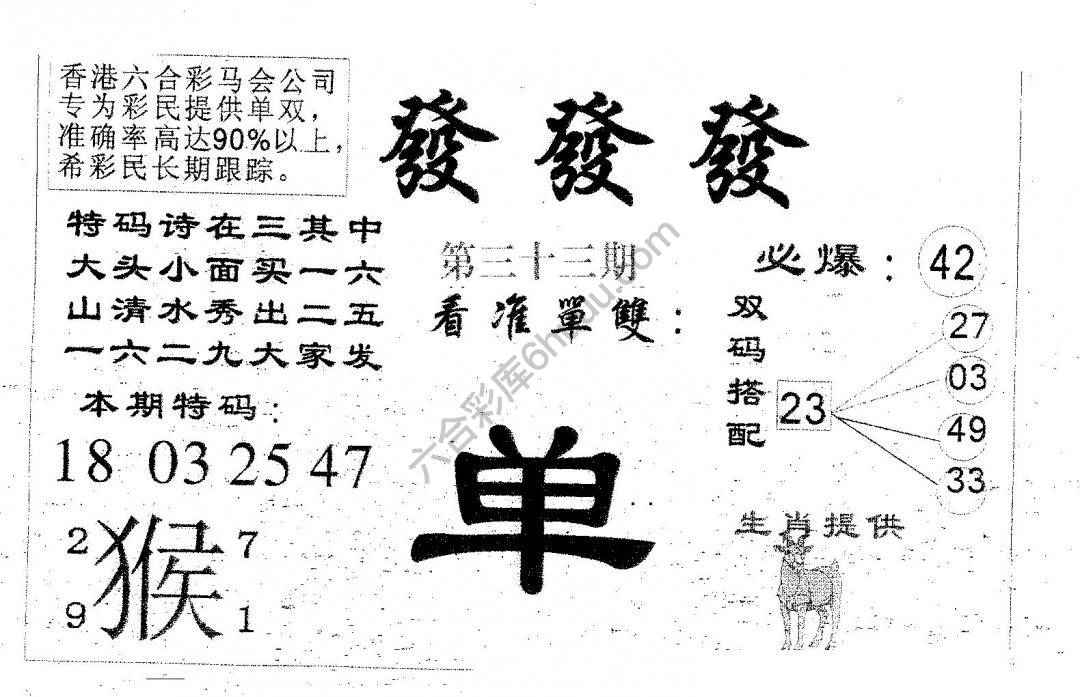 香港六合彩马会公司
专为彩民提供单双，
准确率高达90%以上，
希彩民长期跟踪。
發發發
特码诗在三其中
大头小面买一六
山清水秀出二五
一六二九大家发
第三十三期
看准單雙：
必爆：42
双码搭配
23
27
03
49
33
本期特码：
18 03 25 47
单
2 7
猴
9 1
生肖提供
六合彩库6hcdu.com